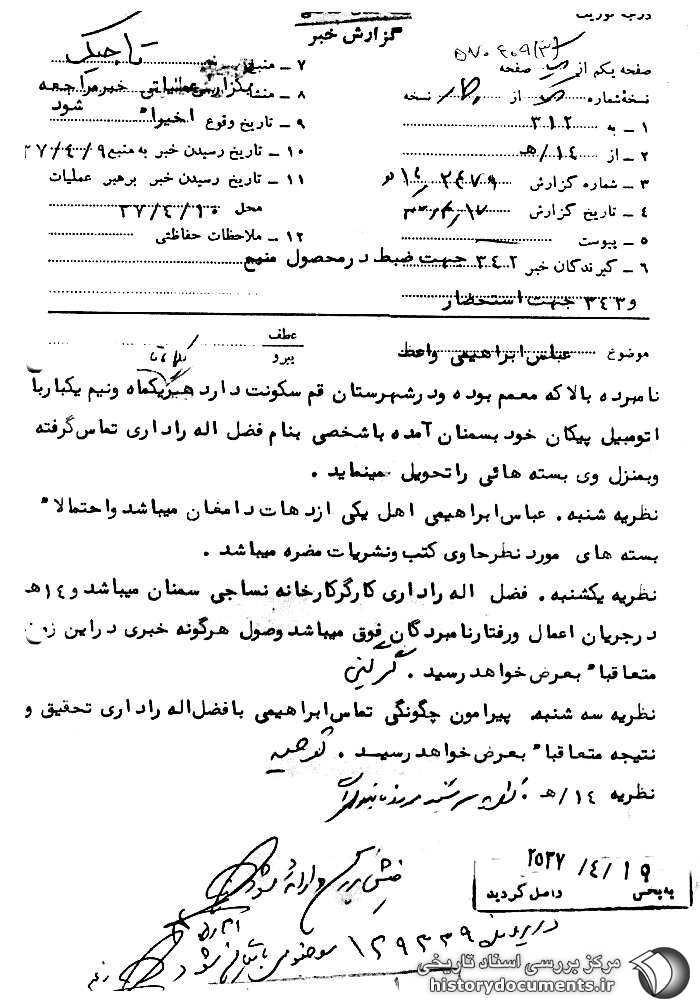 درجه فوریت
گزارش خبر
صفحه یکم از صفحه
نسخه شماره از نسخه
۱ ـ به ۳۱۲
۲ ـ از ۱۴/هـ
۳ ـ شماره گزارش ۲۴۷۹
۴ ـ تاریخ گزارش
۵ ـ پیوست
۶ ـ گیرندگان خبر ۳۴۲ جهت ضبط در محصول منبع
و ۳۴۳ جهت استحضار
۷ ـ منبع تاجیک
۸ ـ منشأ بگزارش عملیاتی خبر مراجعه شود
۹ ـ تاریخ وقوع اخیراً
۱۰ ـ تاریخ رسیدن خبر به منبع ۳۷/۴/۹
۱۱ ـ تاریخ رسیدن خبر برهبر عملیات
محل ۳۷/۴/۱۰
۱۲ ـ ملاحظات حفاظتی
موضوع عباس ابراهیمی واعظ
عطف
پیرو
نامبرده بالا که معمم بوده و در شهرستان قم سکونت دارد هر یکماه و نیم یکبار با
اتومبیل پیکان خود بسمنان آمده با شخصی بنام فضل اله راداری تماس گرفته
و بمنزل وی بسته هائی را تحویل مینماید .
نظریه شنبه . عباس ابراهیمی اهل یکی از دهات دامغان میباشد و احتمالاً
بسته های مورد نظر حاوی کتب و نشریات مضره میباشد .
نظریه یکشنبه . فضل اله راداری کارگر کارخانه نساجی سمنان میباشد و ۱۴ هـ
در جریان اعمال و رفتار نامبردگان فوق میباشد وصول هرگونه خبری در این زمینه
متعاقباً بعرض خواهد رسید .
نظریه سه شنبه . پیرامون چگونگی تماس ابراهیمی با فضل اله راداری تحقیق و
نتیجه متعاقباً بعرض خواهد رسید .
نظریه ۱۴/هـ .
۲۵۳۷/۴/۱۹
به بخش واصل گردید
در پرونده ۱۲۹۳۳۹ بایگانی شود
مرکز بررسی اسناد تاریخی
historydocuments.ir